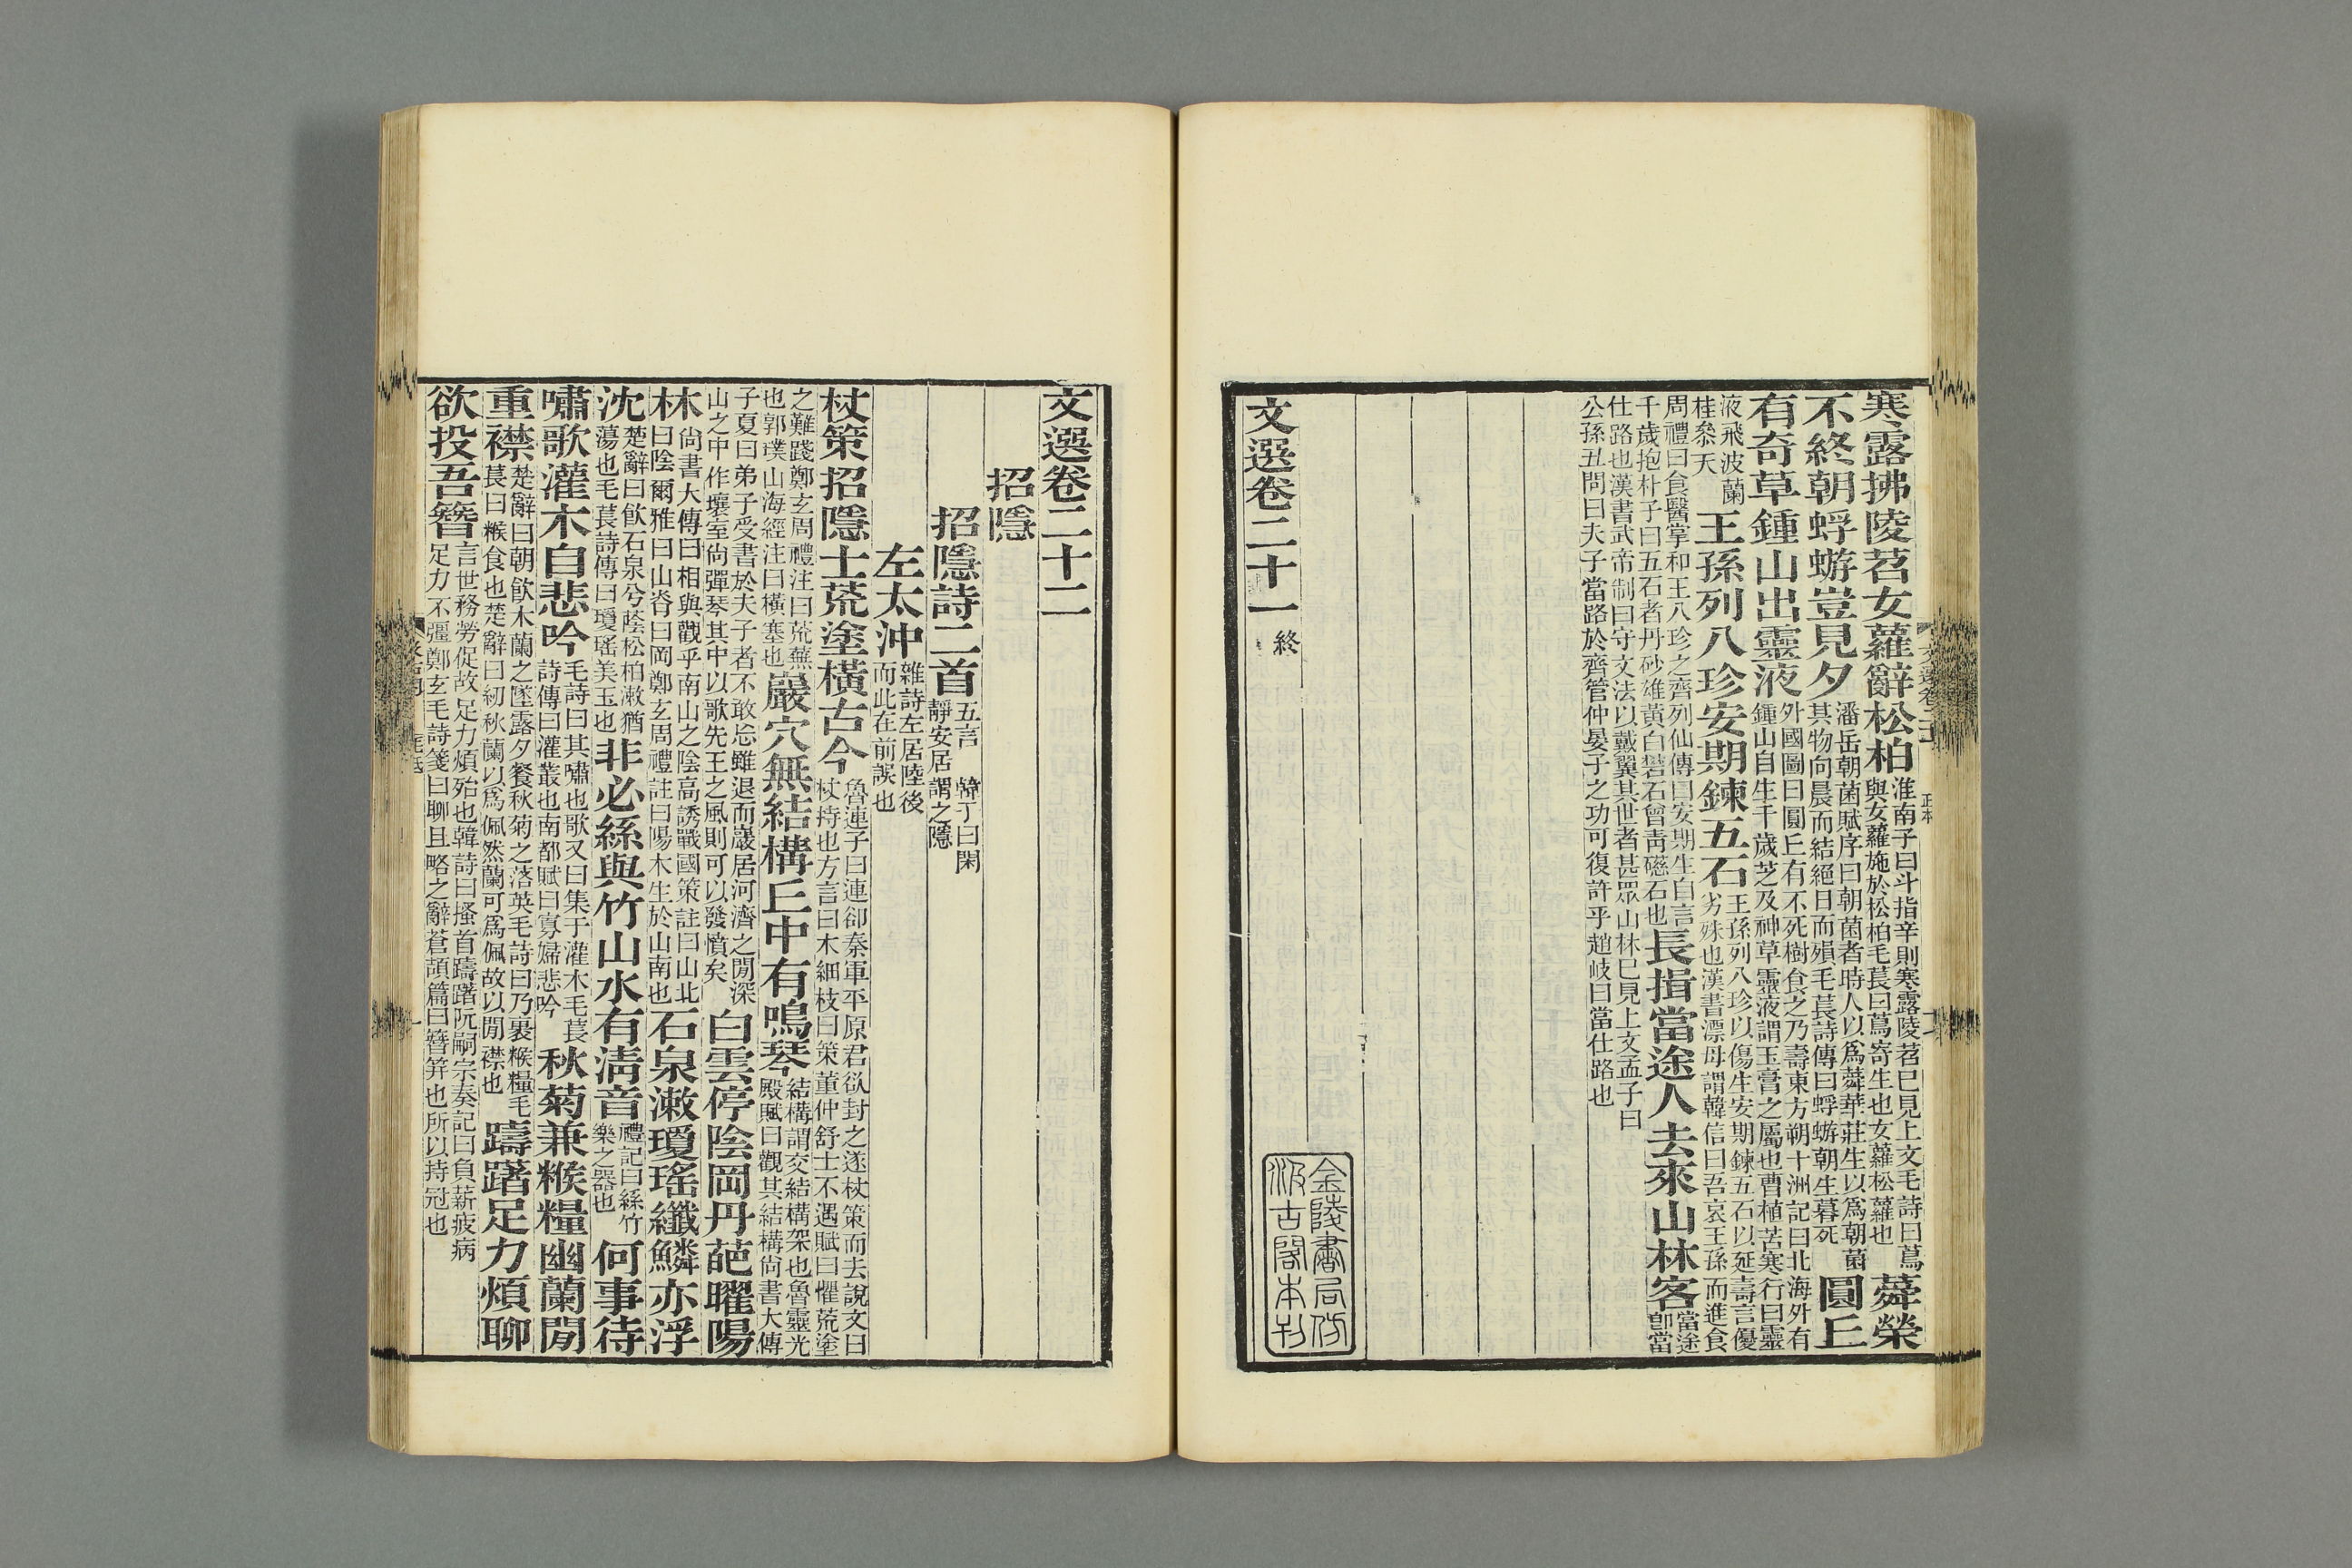 寒露拂陵苕女蘿辭松柏淮南子曰斗指辛則寒露陵苕巳見上文毛詩曰蔦與女蘿施於松柏毛萇曰蔦寄生也女蘿松蘿也蕣榮
不終朝蜉蝣豈見夕潘岳朝菌賦序曰朝菌者時人以爲蕣華莊生以爲朝菌其物向晨而結絕日而殞毛萇詩傳曰蜉蝣朝生暮死圓丘
有奇草鍾山出靈液外國圖曰圓丘有不死樹食之乃壽東方朔十洲記曰北海外有鍾山自生千歲芝及神草靈液謂玉膏之屬也曹植苦寒行曰靈
液飛波蘭桂參天王孫列八珍安期鍊五石王孫列八珍以傷生安期鍊五石以延壽言優劣殊也漢書漂母謂韓信曰吾哀王孫而進食
周禮曰食醫掌和王八珍之齊列仙傳曰安期生自言千歲抱朴子曰五石者丹砂雄黃白礬石曾靑磁石也長揖當途人去來山林客當途卽當
仕路也漢書武帝制曰守文法以戴翼其世者甚眾山林巳見上文孟子曰公孫丑問曰夫子當路於齊管仲晏子之功可復許乎趙岐曰當仕路也
文選卷二十一 終
金陵書局仿
汲古閣本刊
文選卷二十二
招隱
招隱詩二首五言 韓子曰閑靜安居謂之隱
左太沖雜詩左居陸後而此在前誤也
杖策招隱士荒塗橫古今魯連子曰連卻秦軍平原君欲封之遂杖策而去說文曰杖持也方言曰木細枝曰策董仲舒士不遇賦曰懼荒塗
之難踐鄭玄周禮注曰荒蕪也郭璞山海經注曰橫塞也巖穴無結構丘中有鳴琴結構謂交結構架也魯靈光殿賦曰觀其結構尙書大傳
子夏曰弟子受書於夫子者不敢忘雖退而巖居河濟之閒深山之中作壞室尙彈琴其中以歌先王之風則可以發憤矣白雲停陰岡丹葩曜陽
林尙書大傳曰相與觀乎南山之陰高誘戰國策註曰山北曰陰爾雅曰山脊曰岡鄭玄周禮註曰陽木生於山南也石泉漱瓊瑤纖鱗亦浮
沈楚辭曰飮石泉兮蔭松柏漱猶蕩也毛萇詩傳曰瓊瑤美玉也非必絲與竹山水有清音禮記曰絲竹樂之器也何事待
嘯歌灌木自悲吟毛詩曰其嘯也歌又曰集于灌木毛萇詩傳曰灌叢也南都賦曰寡婦悲吟秋菊兼糇糧幽蘭閒
重襟楚辭曰朝飮木蘭之墜露夕餐秋菊之落英毛詩曰乃裹糇糧毛萇曰糇食也楚辭曰紉秋蘭以爲佩然蘭可爲佩故以閒襟也躊躇足力煩聊
欲投吾簪言世務勞促故足力煩殆也韓詩曰搔首躊躇阮嗣宗奏記曰負薪疲病足力不彊鄭玄毛詩箋曰聊且略之辭蒼頡篇曰簪筓也所以持冠也